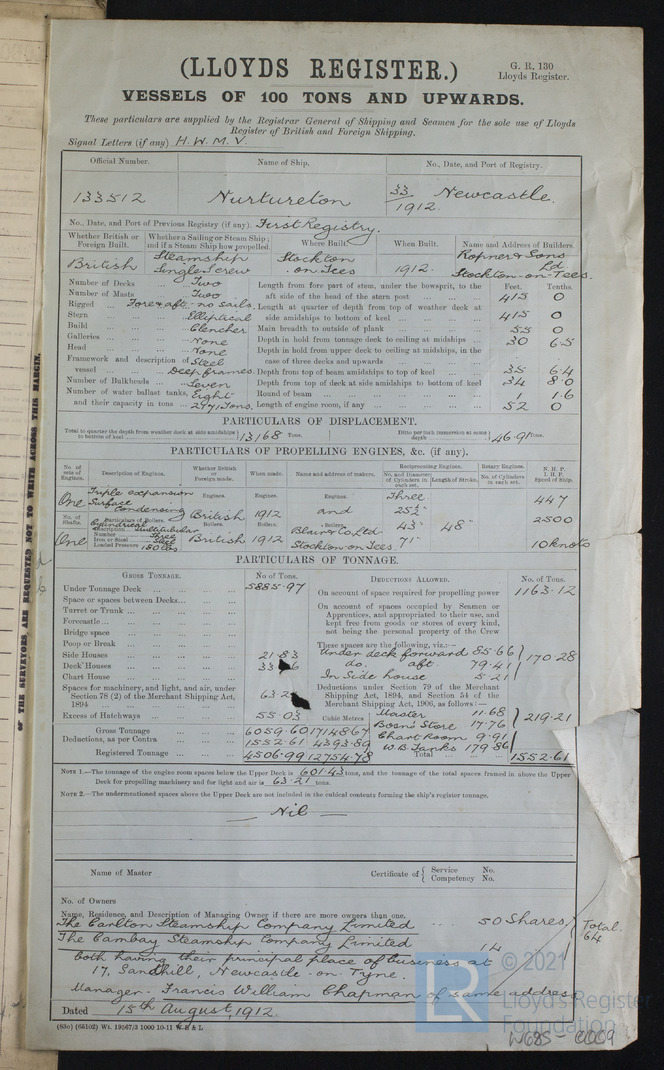 (LLOYDS REGISTER.)
G. R. 130
Lloyds Register.
VESSELS OF 100 TONS AND UPWARDS.
These particulars are supplied by the Registrar General of Shipping and Seamen for the sole use of Lloyds
Register of British and Foreign Shipping.
Signal Letters (if any) H. W. M. V.
Official Number. Name of Ship. No., Date, and Port of Registry.
133512 Nurtureton 33/1912. Newcastle.
No., Date, and Port of Previous Registry (if any). First Registry.
Whether British or Foreign Built. Whether a Sailing or Steam Ship; and if a Steam Ship how propelled. Where Built. When Built. Name and Address of Builders.
British Steamship Single Screw Stockton-on-Tees 1912. Ropner & Sons Ld Stockton-on-Tees.
Number of Decks ... Two
Number of Masts ... Two
Rigged ... Fore & aft - no sails.
Stern ... Elliptical
Build ... Clencher
Galleries ... None
Head ... None
Framework and description of vessel ... Steel Deep frames.
Number of Bulkheads ... Seven
Number of water ballast tanks, and their capacity in tons ... Eight 2771 Tons.
Feet. Tenths.
Length from fore part of stem, under the bowsprit, to the aft side of the head of the stern post ... 415 0
Length at quarter of depth from top of weather deck at side amidships to bottom of keel ... 415 0
Main breadth to outside of plank ... 55 0
Depth in hold from tonnage deck to ceiling at midships ... 30 6.5
Depth in hold from upper deck to ceiling at midships, in the case of three decks and upwards
Depth from top of beam amidships to top of keel ... 35 6.4
Depth from top of deck at side amidships to bottom of keel 34 8.0
Round of beam ... 1 1.6
Length of engine room, if any ... 52 0
PARTICULARS OF DISPLACEMENT.
Total to quarter the depth from weather deck at side amidships to bottom of keel 13168 Tons.
Ditto per inch immersion at same depth 46.91 Tons.
PARTICULARS OF PROPELLING ENGINES, &c. (if any).
No. of sets of Engines. Description of Engines. Whether British or Foreign made. When made. Name and address of makers. Reciprocating Engines. Rotary Engines. N. H. P. I. H. P. Speed of Ship.
No. and Diameter of Cylinders in each set. Length of Stroke. No. of Cylinders in each set.
One Triple expansion Surface Condensing Engines. British Engines. 1912 Engines. and Three 25½" 447
No. of Shafts. Particulars of Boilers. Boilers. Boilers. Boilers. Blair & Co Ltd 43" 48" 2500
One Description Cylindrical Multitubular
Number Three
Iron or Steel Steel
Loaded Pressure 180 lbs British 1912 Stockton on Tees 71" 10 knots
PARTICULARS OF TONNAGE.
GROSS TONNAGE. No of Tons. DEDUCTIONS ALLOWED. No. of Tons.
Under Tonnage Deck ... 5885.97
Space or spaces between Decks...
Turret or Trunk ...
Forecastle...
Bridge space
Poop or Break
Side Houses 21.83
Deck Houses
Chart House
Spaces for machinery, and light, and air, under Section 78 (2) of the Merchant Shipping Act, 1894
Excess of Hatchways 55.03 Cubic Metres
Gross Tonnage 6059.60 17148.67
Deductions, as per Contra 1552.61 4393.89
Registered Tonnage 4506.99 12754.78
On account of space required for propelling power 1163.12
On account of spaces occupied by Seamen or Apprentices, and appropriated to their use, and kept free from goods or stores of every kind, not being the personal property of the Crew
These spaces are the following, viz.:—
Under deck forward 85.66
do. aft 79.41 170.28
In Side house 5.21
Deductions under Section 79 of the Merchant Shipping Act, 1894, and Section 54 of the Merchant Shipping Act, 1906, as follows:—
Master 11.68
Bosn's Store 17.76 219.21
Chart Room 9.91
W.B. Tanks 179.86
Total 1552.61
NOTE 1.—The tonnage of the engine room spaces below the Upper Deck is 601.43 tons, and the tonnage of the total spaces framed in above the Upper
Deck for propelling machinery and for light and air is 63.21 tons.
NOTE 2.—The undermentioned spaces above the Upper Deck are not included in the cubical contents forming the ship's register tonnage.
— Nil —
Name of Master Certificate of { Service No.
Competency No.
No. of Owners
Name, Residence, and Description of Managing Owner if there are more owners than one.
The Carlton Steamship Company Limited .. 50 Shares
The Cambay Steamship Company Limited 14
Total 64
both having their principal place of business at
17, Sandhill, Newcastle-on-Tyne.
Manager - Francis William Chapman of same address
Dated 15th August, 1912.
(83c) (66102) Wt. 19567/3 1000 10-11 W B & L
OF THE SURVEYORS, ARE REQUESTED NOT TO WRITE ACROSS THIS MARGIN.
LR
© 2021
Lloyd's Register
Foundation
W685-0009